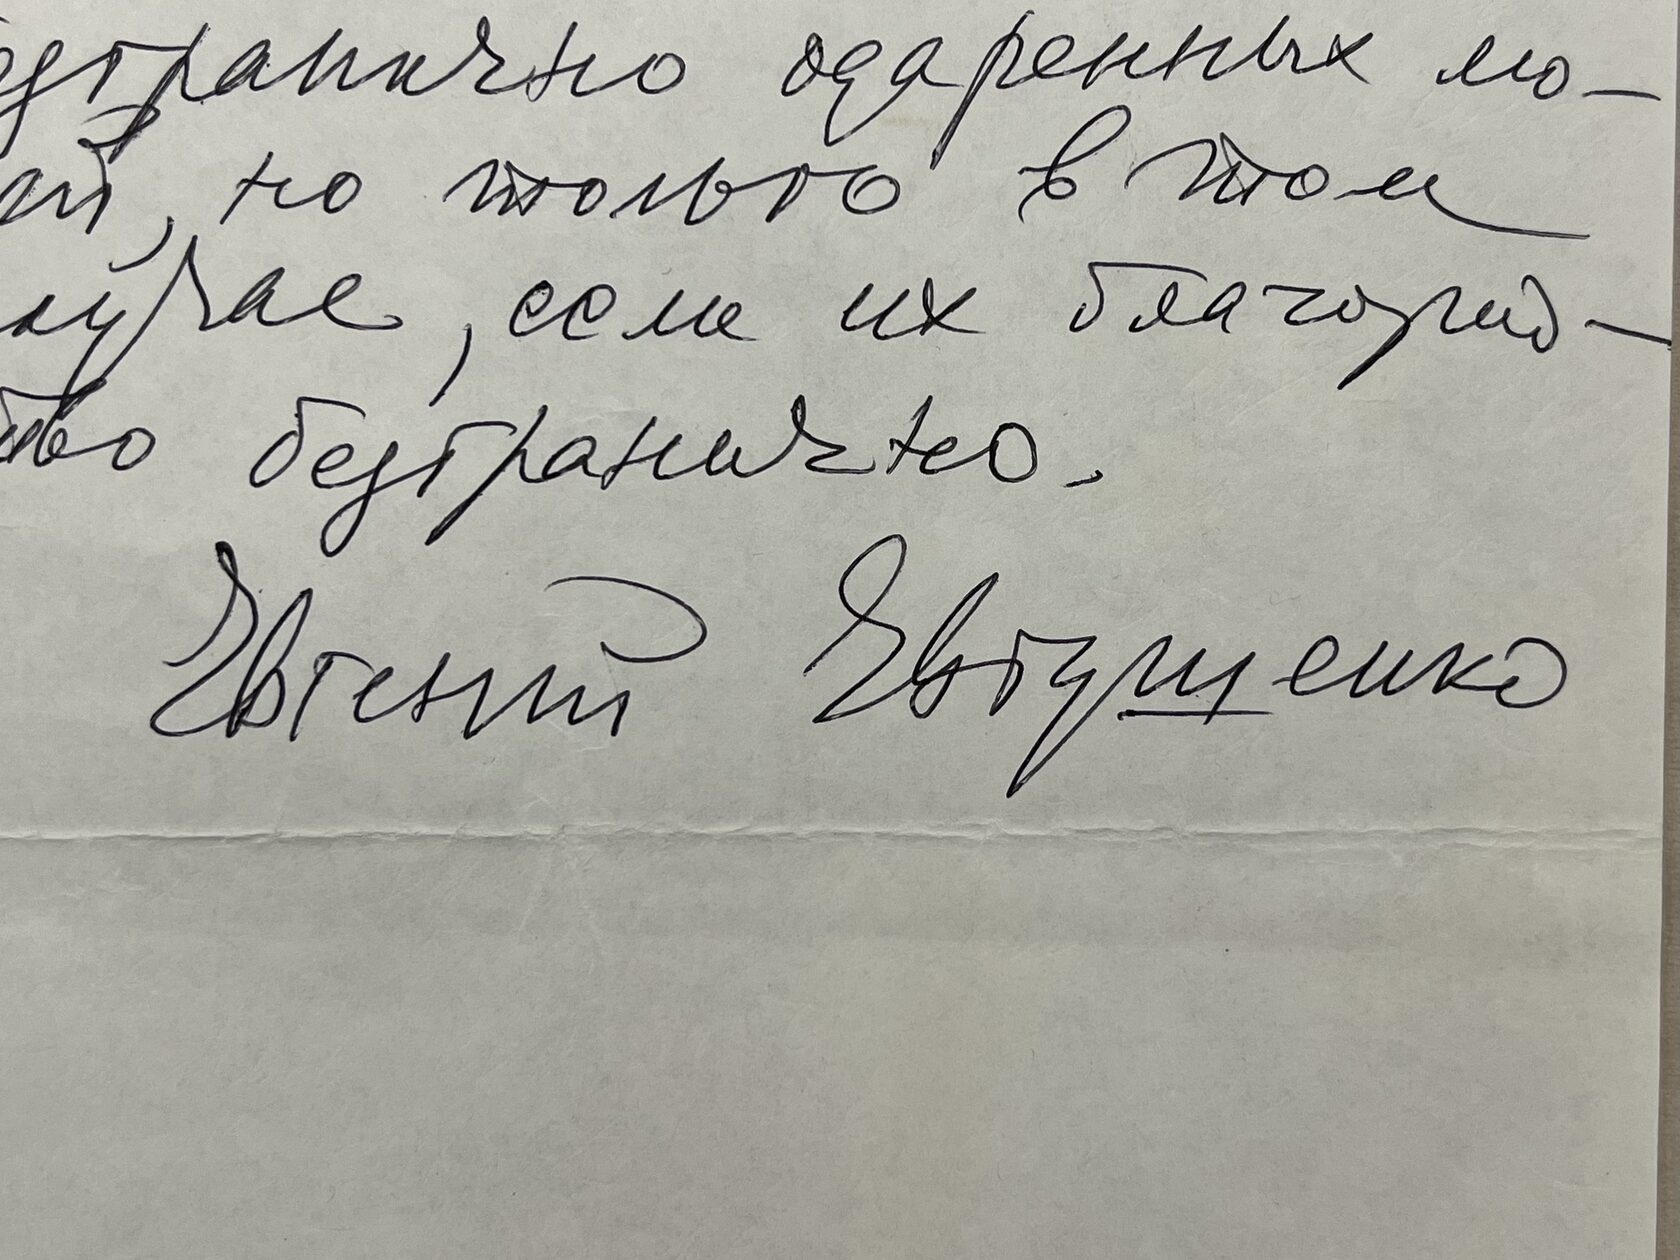 езгранично одаренных лю-
ей, но только в том
лучае, если их благород-
ство безгранично.
Евгений Евтушенко